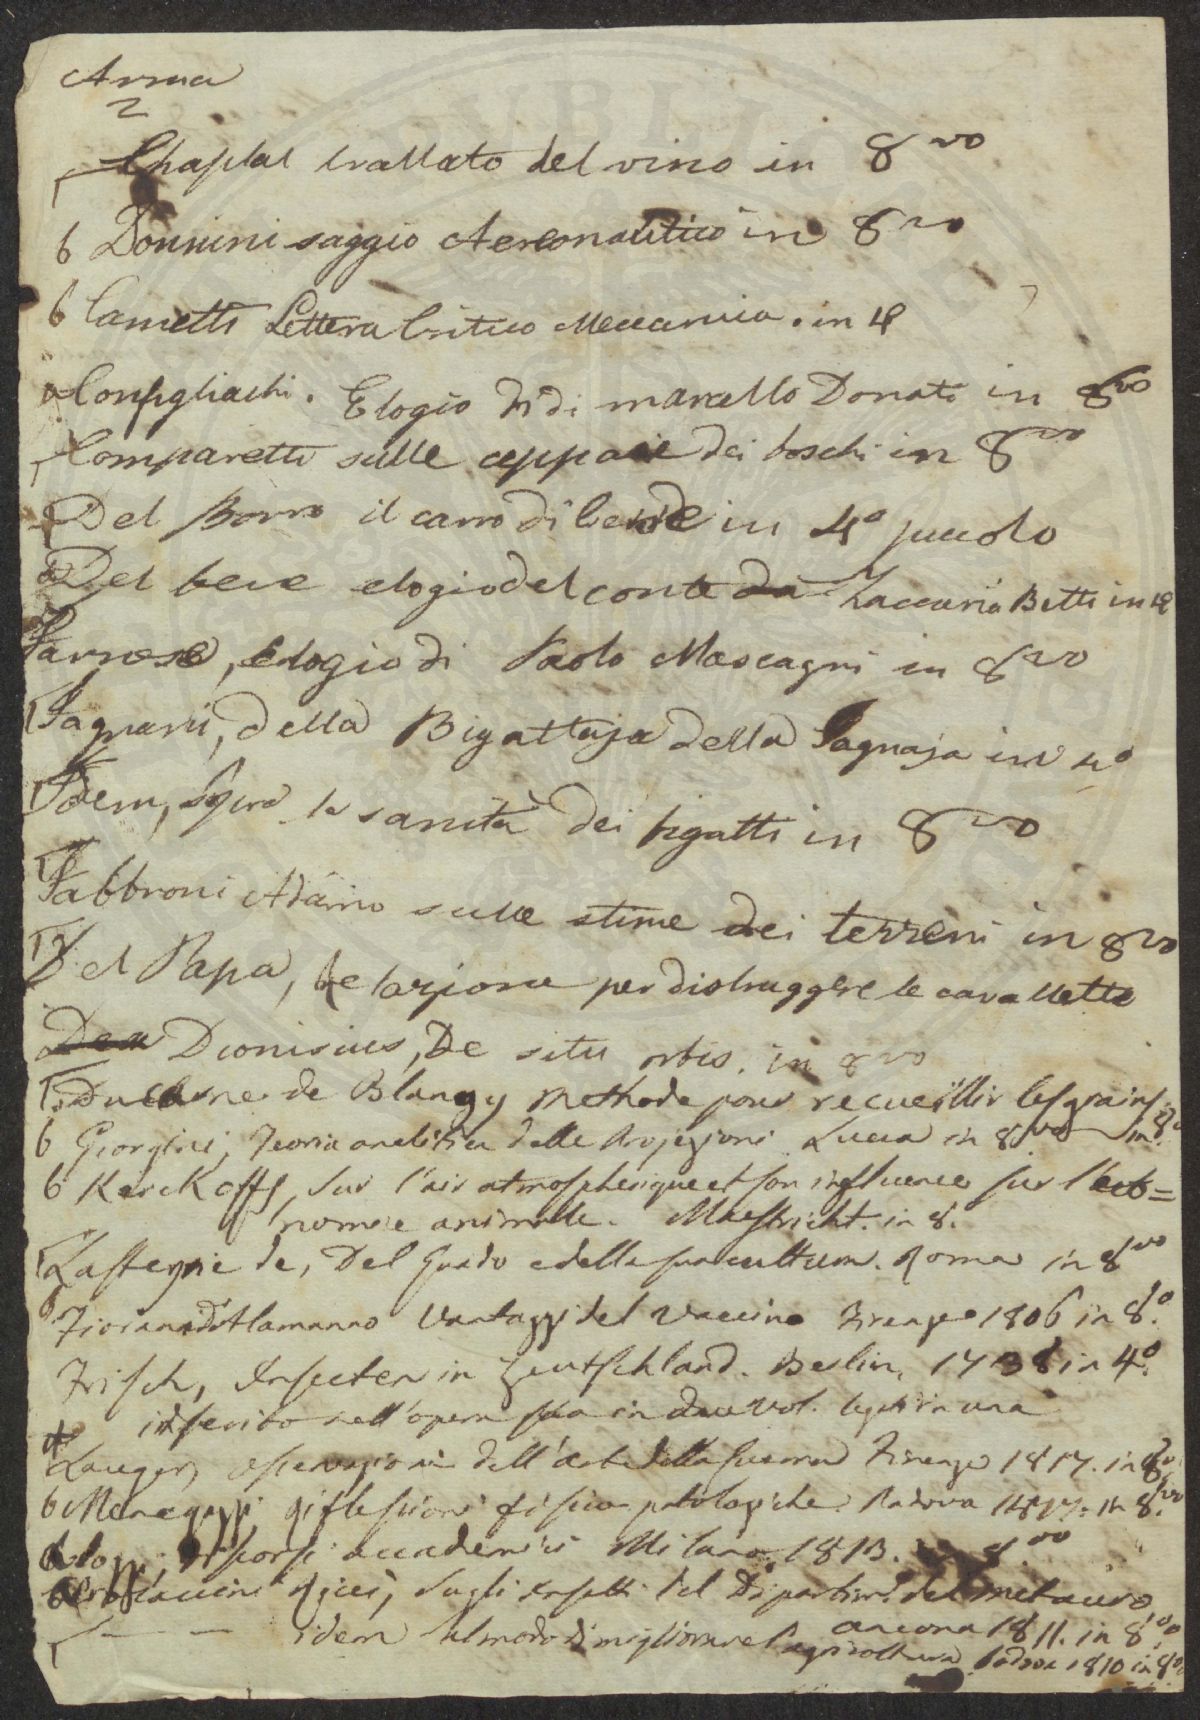 Chaptal trattato del vino in 8vo
6 Donnini saggio Aereonautico in 8vo
6 Cametti Lettera Critico Meccanica. in 4
Configliachi. Elogio di marcello Donati in 8vo
Comparetti sulle ceppaie dei boschi in 8vo
Del Borro il carro di Cerere in 4º piccolo
Del bene elogio del conte Zaccaria Betti in 4
Farnese, elogio di Paolo Mascagni in 8vo
Fagnani, della Bigattaja della Fagnaja in 4º
Idem, Sopra la sanità dei bigatti in 8vo
Fabbroni Adamo sulle stime dei terreni in 8vo
Del Papa, Relazione per distruggere le cavallette
Dionisius, De situ orbis. in 8vo
Duchesne de Blangy Methode pour recueillir les grains in 8
6 Giorgini, Teoria analitica delle Projezioni Lucca in 8vo
6 Kerckoffs, Sur l'air atmospherique et son influence sur l'eco=
nomie animale. Maestricht. in 8.
Lasteyrie de, Del Guado e della sua cultura. Roma in 8vo
Fiorani Alamanno Vantaggi del Vaccino Firenze 1806 in 8º
Frisch, Insecten in Teutschland. Berlin, 1738 in 4º
inserito nell'opera sua in due vol. in una
Lauger, osservazioni dell'arte della Guerra Firenze 1817. in 8vo
6 Meneguzzi riflessioni fisico patologiche. Padova 1817. in 8vo
discorsi accademici Milano, 1813. 8vo
Sugli Insetti del Dipartim. del metauro
ancona 1811. in 8vo
idem sul modo di migliorare l'agricoltura Padova 1810 in 8vo